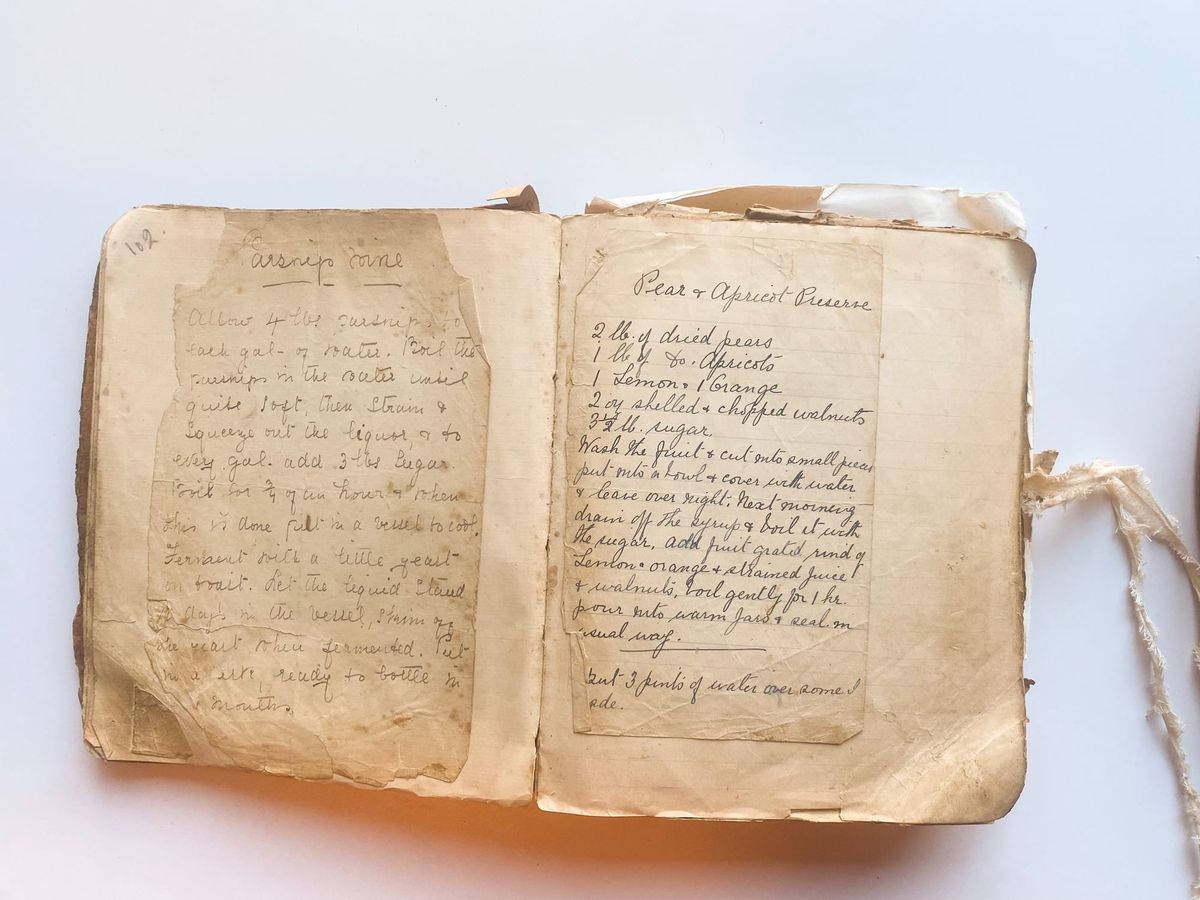 102
Parsnip Wine
Allow 4 lbs parsnips to
each gal- of water. Boil the
parsnips in the water until
quite soft, then strain &
squeeze out the liquor, & to
every gal. add 3 lbs sugar.
Boil for ¾ of an hour & when
this is done put in a vessel to cool.
Ferment with a little yeast
on toast. Let the liquid stand
days in the vessel, skim off
the yeast when fermented. Put
in a ready to bottle in
months.
Pear & Apricot Preserve
2 lb. of dried pears
1 lb of do. Apricots
1 Lemon & 1 Orange
2 oz shelled & chopped walnuts
3½ lb. sugar.
Wash the fruit & cut into small pieces
put into a bowl & cover with water
& leave over night. Next morning
drain off the syrup & boil it with
the sugar, add fruit grated rind of
Lemon & orange & strained juice
& walnuts, boil gently for 1 hr.
pour into warm jars & seal in
usual way.
put 3 pints of water over some I
sde.